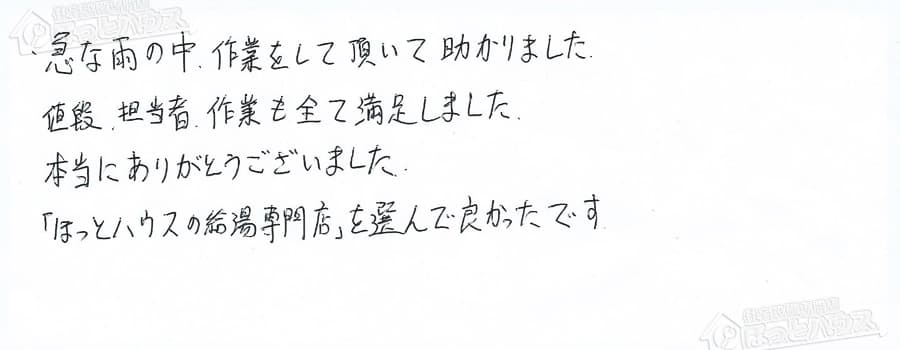 急な雨の中、作業をして頂いて助かりました。
値段、担当者、作業も全て満足しました。
本当にありがとうございました。
「ほっとハウスの給湯専門店」を選んで良かったです
ほっとハウス